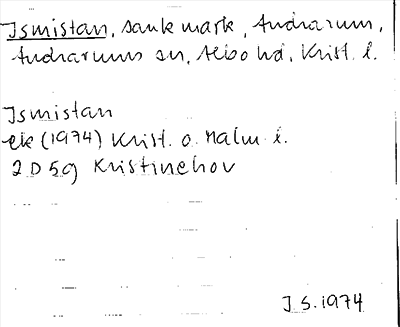 Ismistan, sank mark, Andrarum,
Andrarums sn, Albo hd, Krist. l.
Ismistan
ek (1974) Krist. o. Malm l.
2D5g Kristinehov
J S. 1974